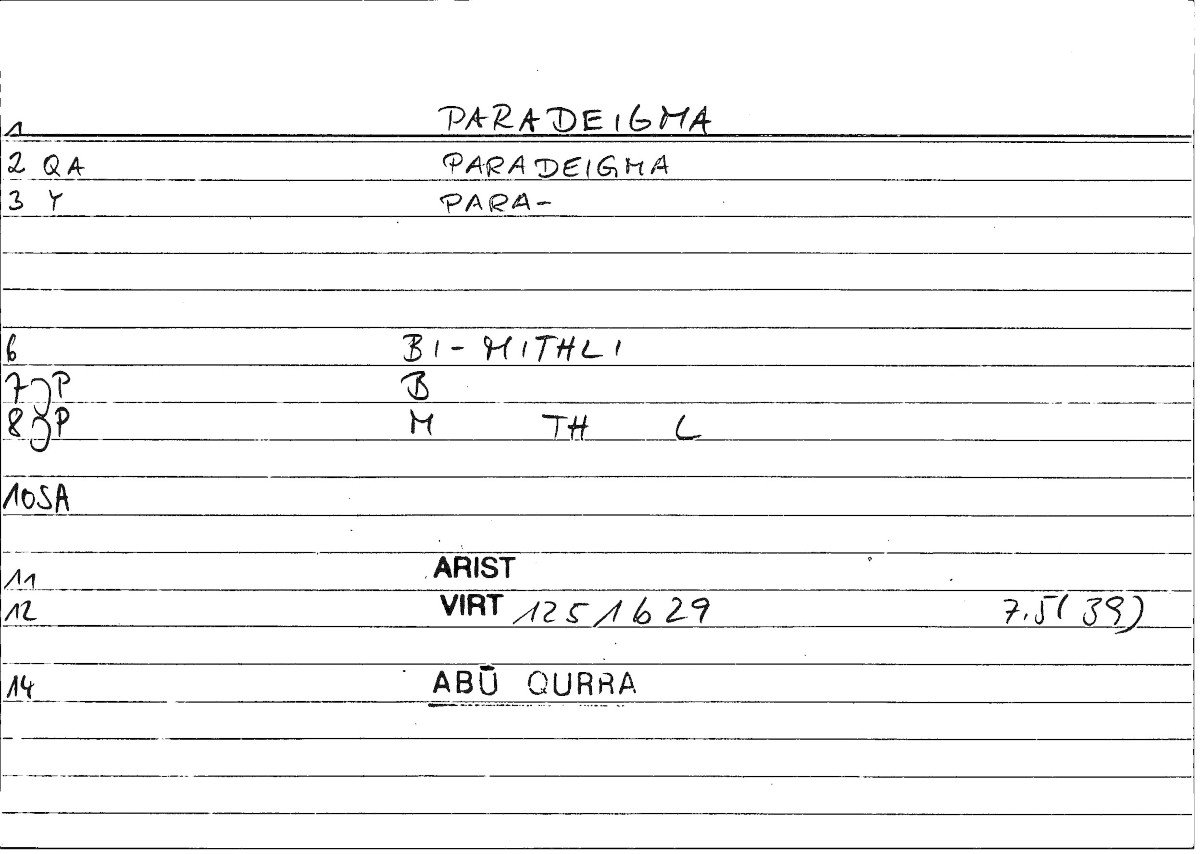 1 PARADEIGMA
2 QA PARADEIGMA
3 Y PARA-
6 BI-MITHLI
7 JP B
8 JP M TH L
10SA
11 ARIST
12 VIRT 1251b29 7.5(39)
14 ABŪ QURRA